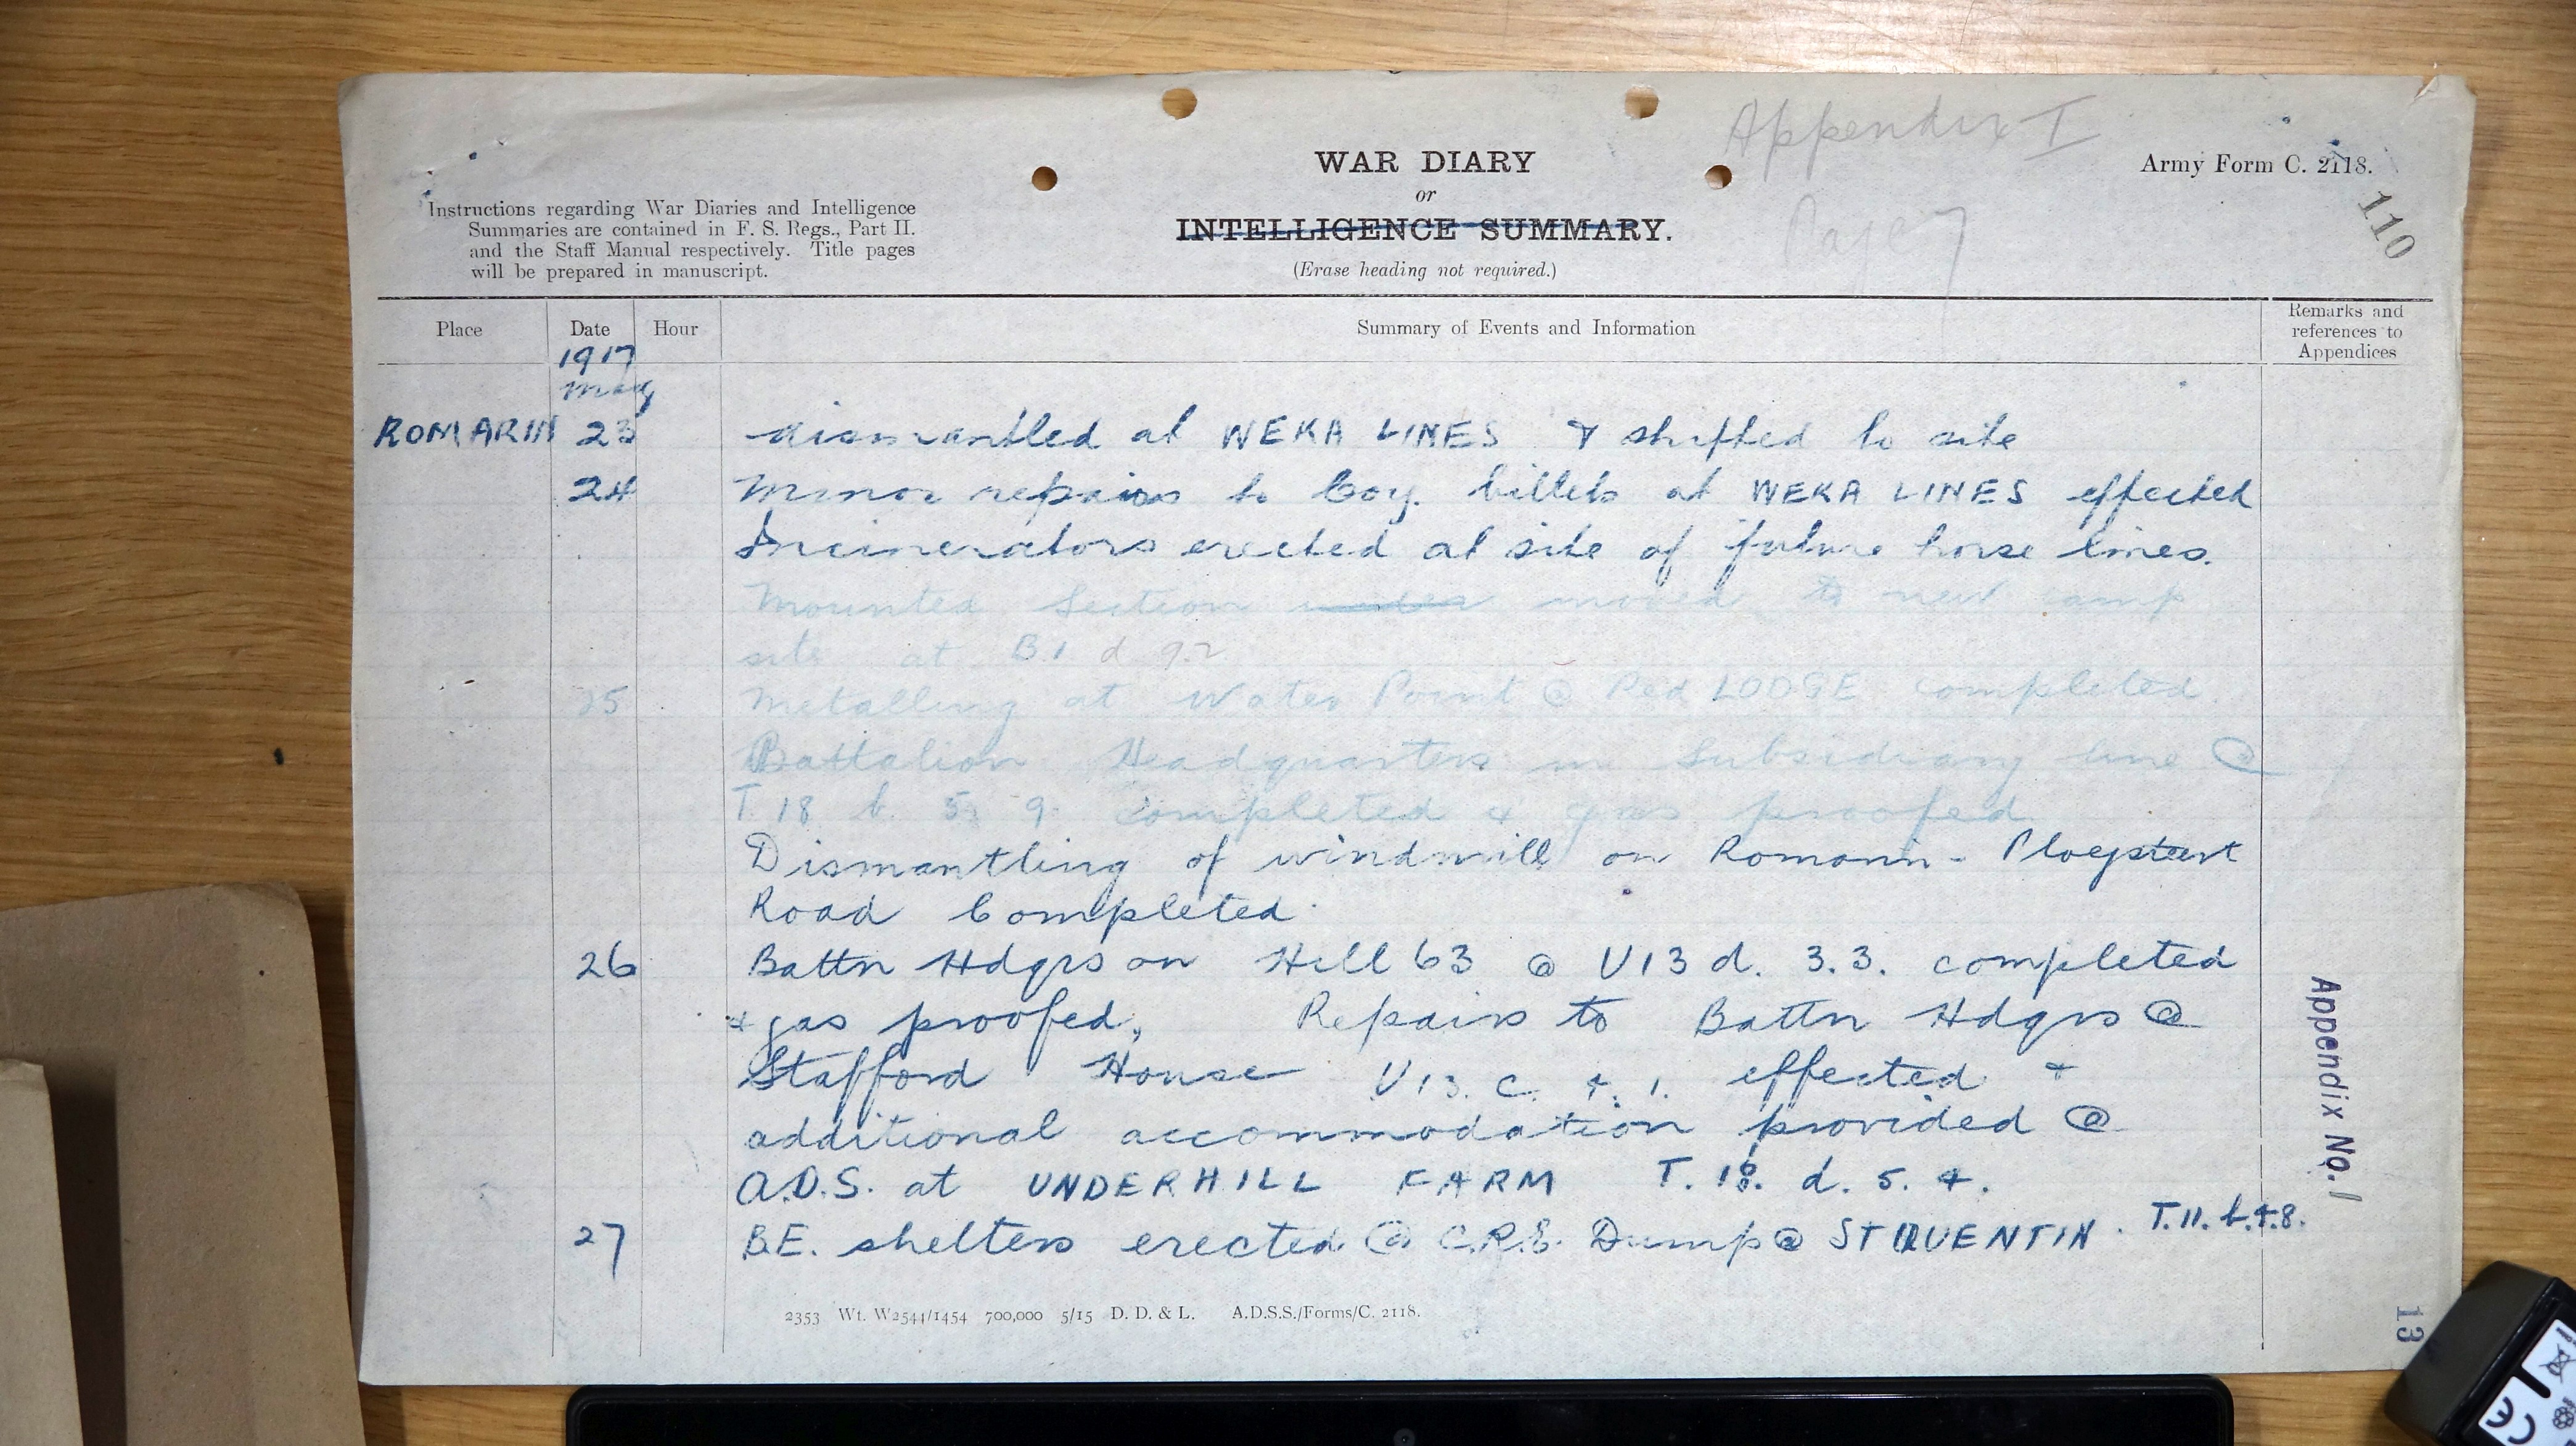 Appendix I
Page 7
WAR DIARY
or
INTELLIGENCE SUMMARY.
(Erase heading not required.)
Army Form C. 2118.
110
Instructions regarding War Diaries and Intelligence
Summaries are contained in F. S. Regs., Part II.
and the Staff Manual respectively. Title pages
will be prepared in manuscript.
Place Date Hour Summary of Events and Information Remarks and references to Appendices
1917
May
ROMARIN 23 dismantled at WEKA LINES & shifted to site
24 Minor repairs to Coy. billets at WEKA LINES effected
Incinerators erected at site of future horse lines.
Mounted Section moved to new camp
site at B1 d 9.2
25 Metalling at Water Point @ Red LODGE completed.
Battalion Headquarters in Subsidiary line @
T.18 b. 5. 9. completed & gas proofed
Dismantling of windmill on Romarin - Ploegsteert
Road Completed.
26 Battn Hdqrs on Hill 63 @ U13 d. 3.3. completed
& gas proofed, Repairs to Battn Hdqrs @
Stafford House U13. c. 4. 1. effected &
additional accommodation provided @
A.D.S. at UNDERHILL FARM T. 18. d. 5. 4.
27 B.E. shelters erected @ C.R.E. Dump @ ST QUENTIN. T.11. b.4.8.
Appendix No. 1
2353 Wt. W2544/1454 700,000 5/15 D. D. & L. A.D.S.S./Forms/C. 2118.
13